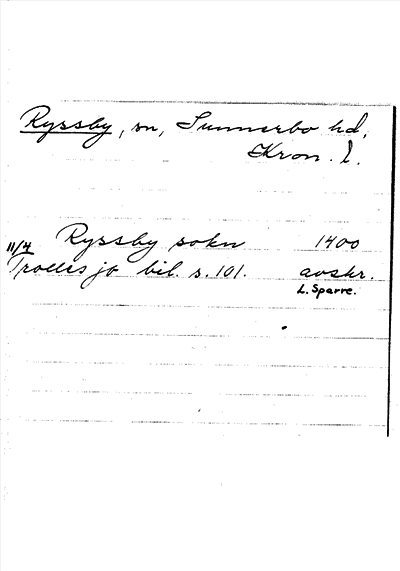 Ryssby, sn, Sunnerbo hd,
Kron. l.
Ryssby sokn 1400
11/4
Trolles jb bil. s. 101. avskr.
L. Sparre.